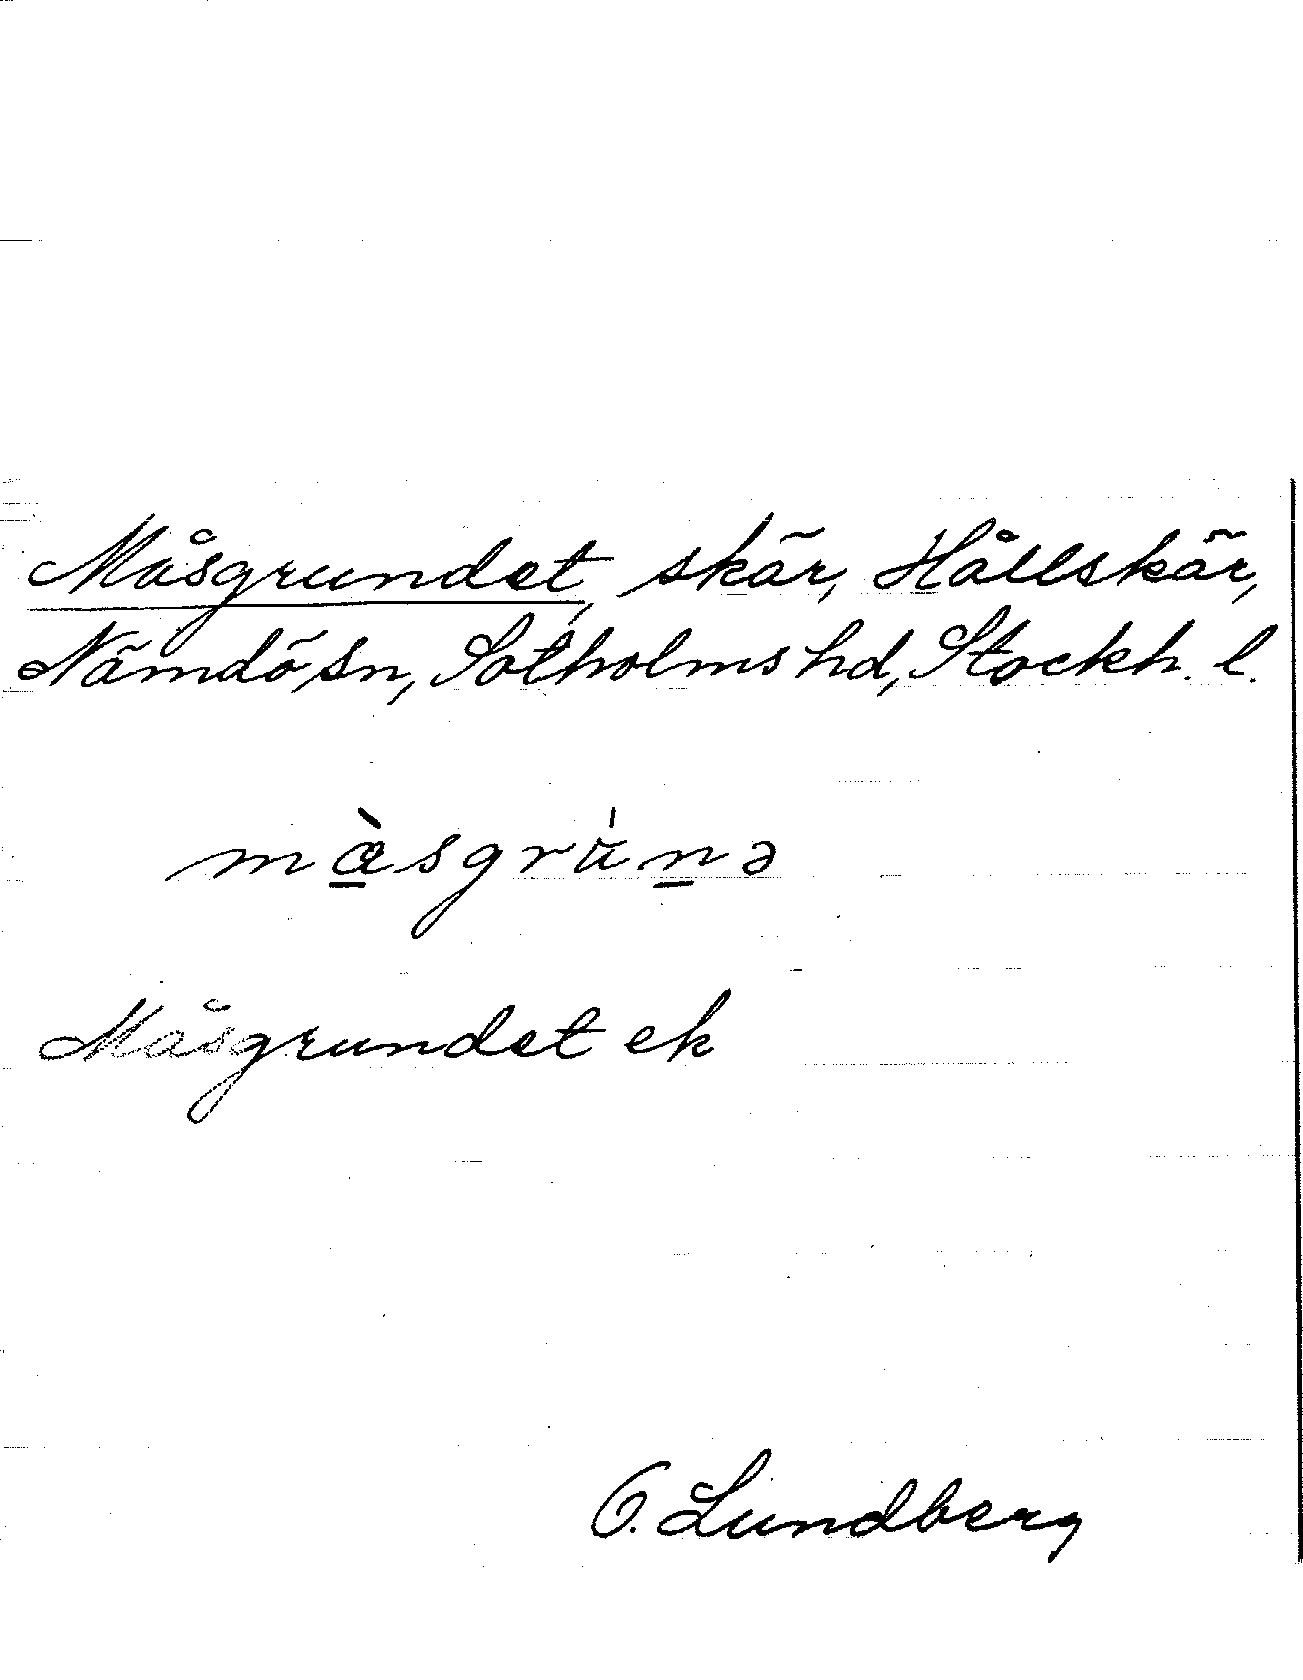 Måsgrundet, skär, Hållskär,
Nämdö sn, Sotholms hd, Stockh. l.
mὰsgru̇nə
Måsgrundet ek
O. Lundberg